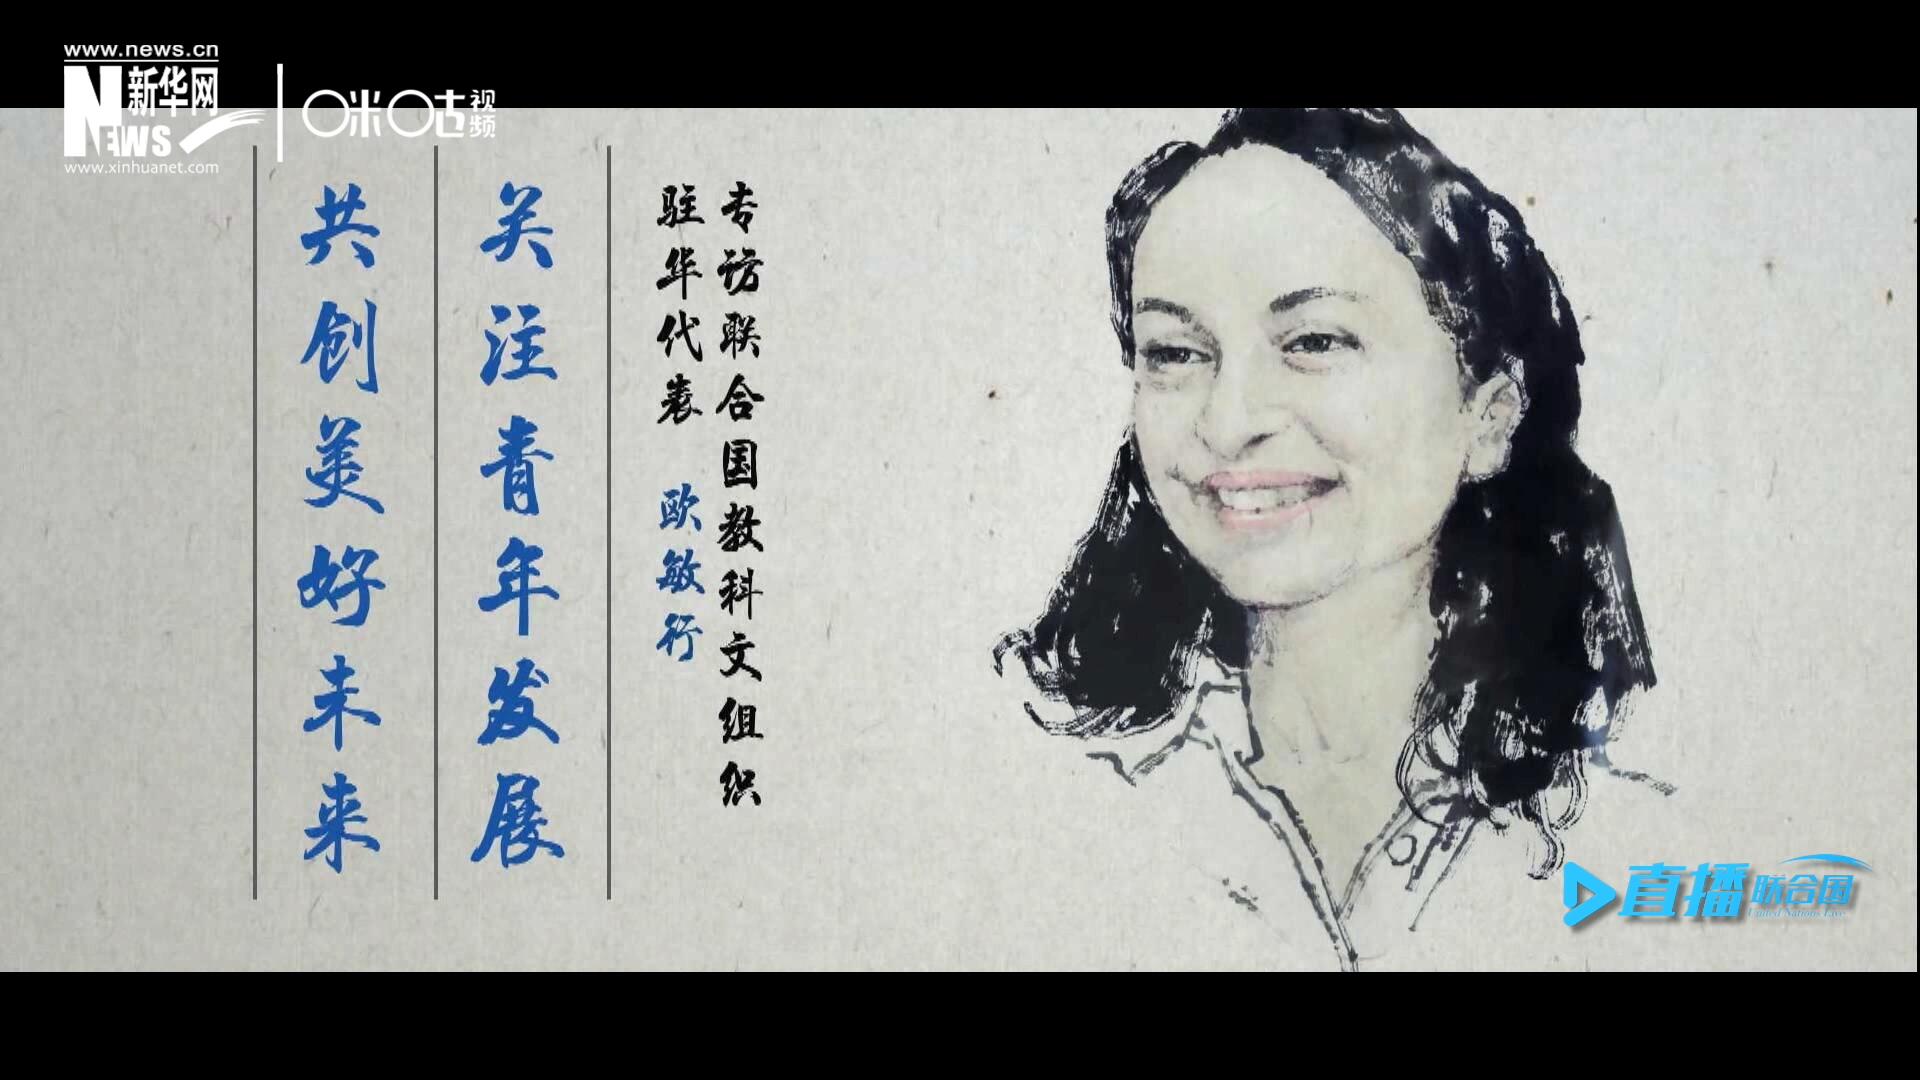 www.news.cn
新华网
NEWS
www.xinhuanet.com
咪咕视频
专访联合国教科文组织
驻华代表 欧敏行
关注青年发展
共创美好未来
直播联合国
United Nations Live